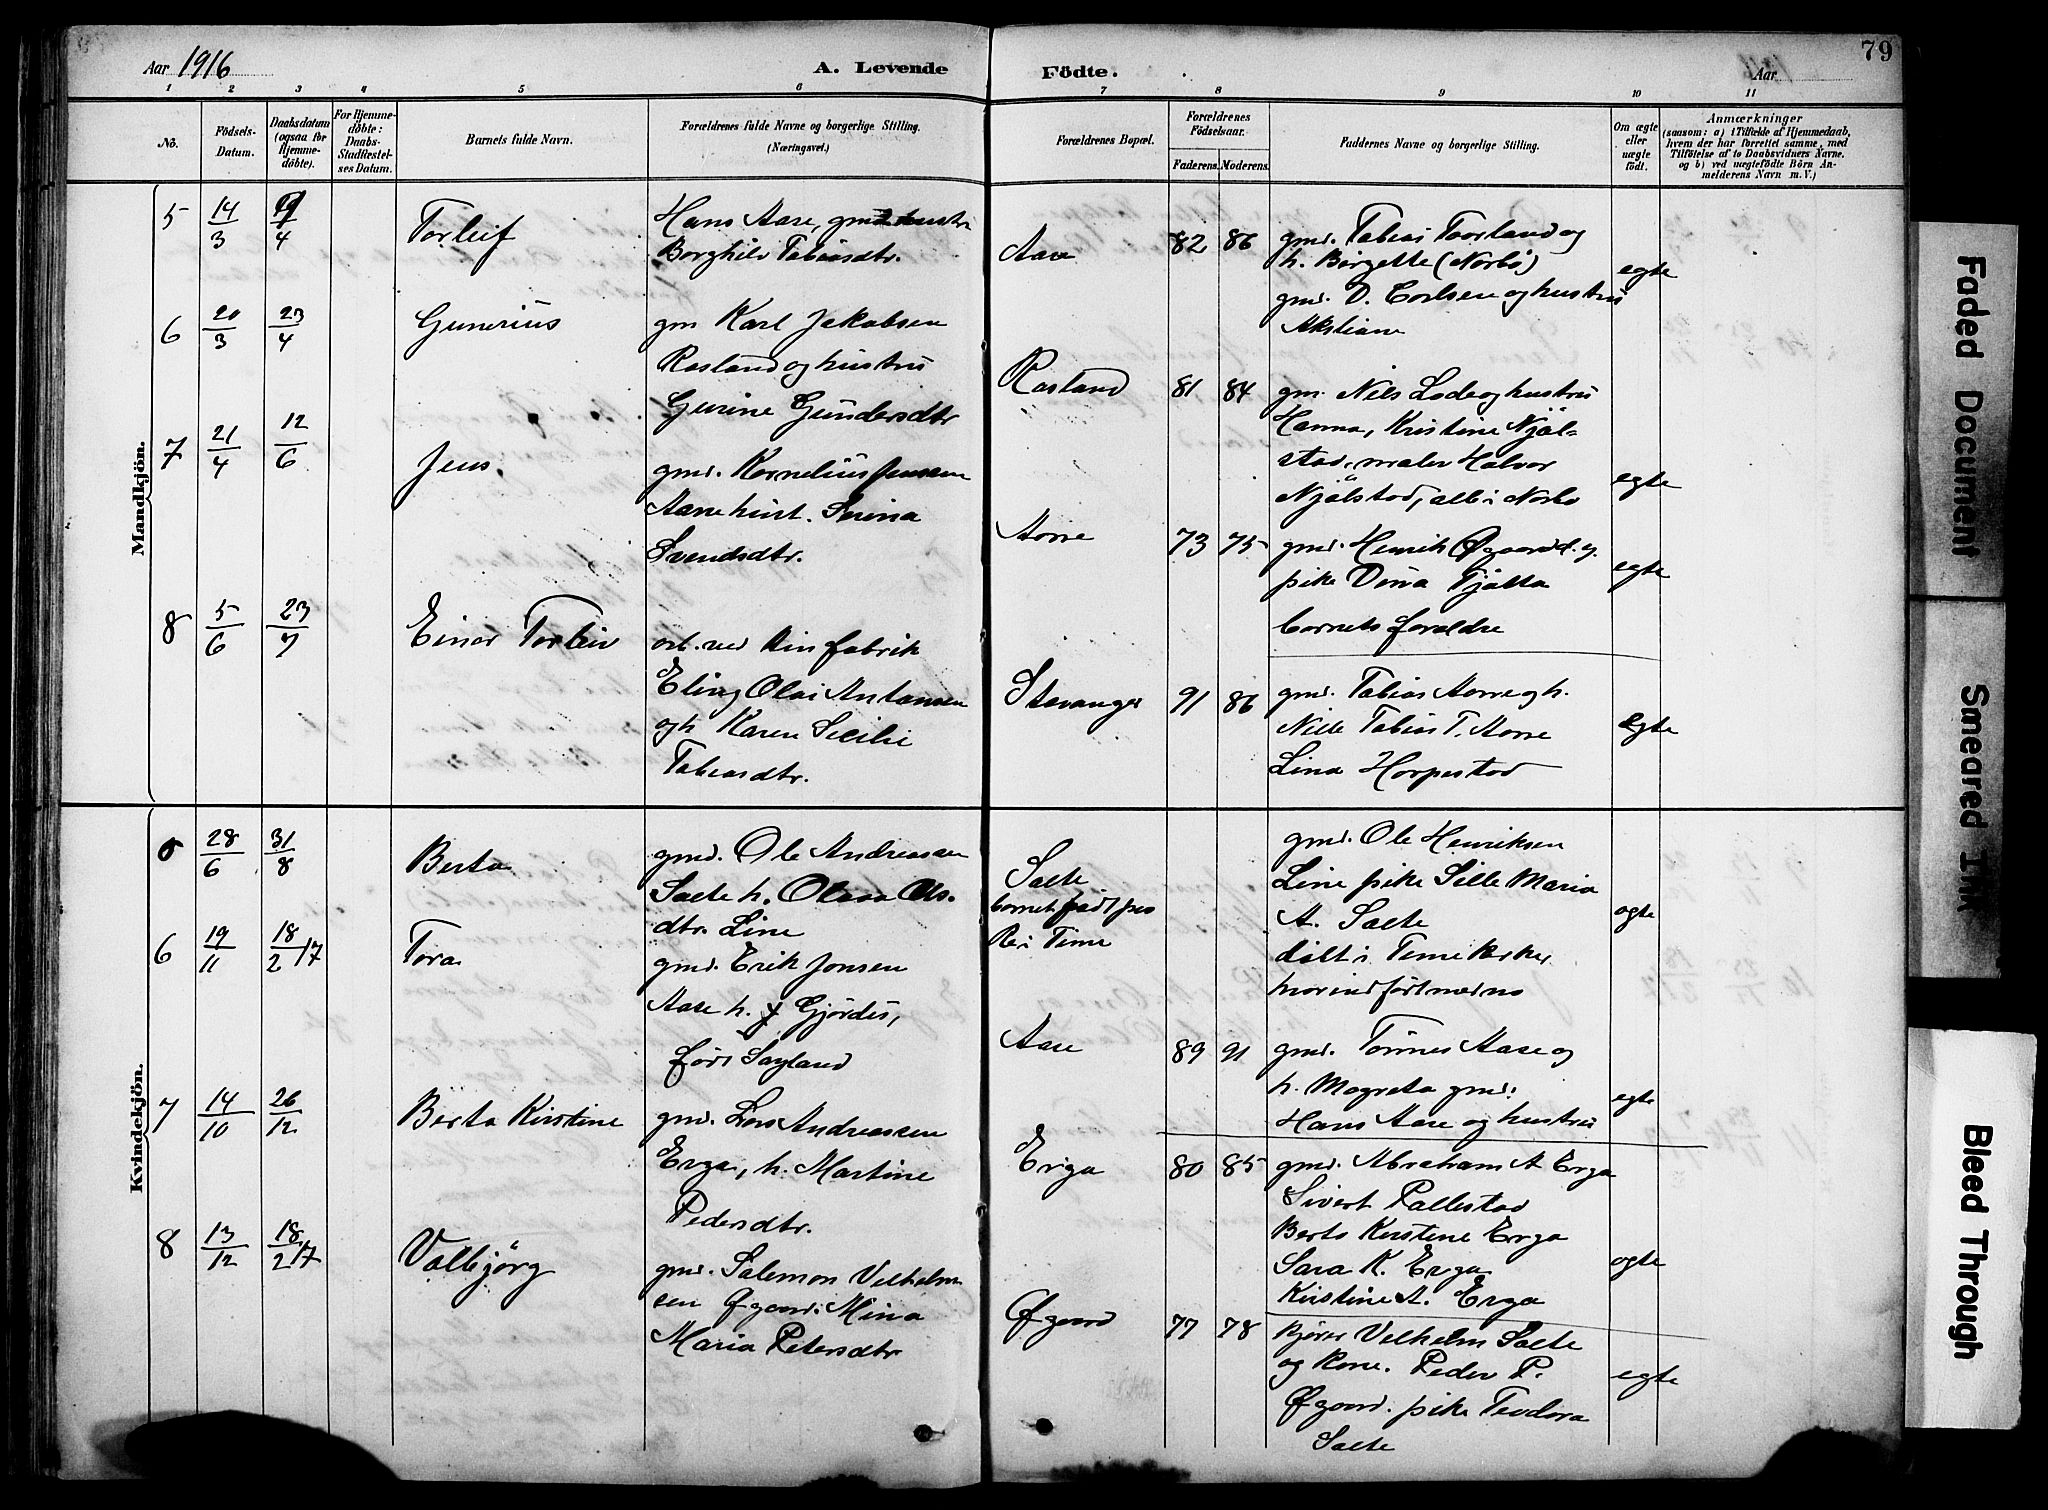 79
Aar 1916
A. Levende
Födte.
Aar
1 2 3 4 5 6 7 8 9 10 11
No.
Födsels-
Datum.
Daabsdatum
(ogsaa for
Hjemme-
döbte).
For Hjemme-
döbte:
Daabs-
Stadfæstel-
ses Datum.
Barnets fulde Navn.
Forældrenes fulde Navne og borgerlige Stilling.
(Næringsvei.)
Forældrenes Bopæl.
Forældrenes
Födselsaar.
Faderens. Moderens.
Faddernes Navne og borgerlige Stilling.
Om ægte
eller
uægte
födt.
Anmærkninger
(saasom: a) i Tilfælde af Hjemmedaab,
hvem der har forrettet samme, med
Tilföielse af to Daabsvidners Navne.
og b) ved uegtefödte Börn An-
melderens Navn m. V.)
Mandkjön.
5 14/3 /4 Torleif
Hans Aase, gmd hustr
Borghild Tobiasdtr.
Aase 82 86
gmd. Tobias Toorland og
h. Birgette (Norbö)
gmd. D. Corlsen og hustru
egte
6 20/3 23/4 Gunerius
gm Karl Jakobsen
Rosland og hustru
Gurine Gundersdtr
Rosland 81 84
gm. Niels Lode og hustru
Hanna, Kristine Njøl-
stad, maler Halvor
Njølstad, alle i Norbø
egte
7 21/4 12/6 Jens.
gmd. Kornelius Jensen
Aarre hust. Serina
Svendsdtr.
Aarre 73 75
gmd. Henrik Øgaard. og
pike Dina Tjøtta
barnets foraldre
egte
8 5/6 23/7 Einar Torleiv
arb. ved fabrik
Eling Olai Antonsen
og h Karen Secilie
Tobiasdtr.
Stavanger 91 86
gmd. Tobias Aarre og h.
Nille Tobias T. Aarre
Lina Horpestad
Egte
Kvindekjön.
5 28/6 31/8 Berta
gmd. Ole Andreassen
Salte h. Olava Ols-
dtr. Line
Salte
barnet født paa
Re i Time
gmd. Ole Henriksen
Line pike Sille Maria
A. Salte
døbt i Time kirke
egte
6 19/11 18/2 17 Tora
gmd. Erik Jonsen
Aase h. Gjördis,
født Søyland
Aase 89 91
gmd. Tönnes Aase og
h. Magreta gmd.
Hans Aase og hustru
egte
7 14/10 26/12 Berta Kirstine
gmd. Lars Andreassen
Erga, h. Martine
Pedersdtr.
Erga 80 85
gmd. Abraham A Erga
Sivert Pallestad
Berta Kirstine Erga
Sara K. Erga
Kirstine A. Erga
egte
8 13/12 18/2 17 Valbjörg
gmd. Salemon Velhelm
sen Øgaard. Mina
Maria Petersdtr
Øgaard 77 78
Velhelm Salte
og kone. Peder P.
Øgaard. pike Teodora
Salte
egte
Faded Document
Smeared Ink
Bleed Through